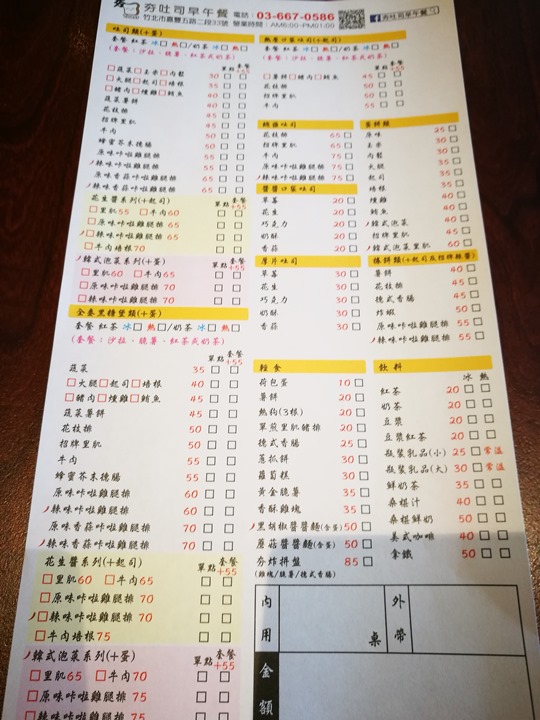 夯吐司早午餐 電話:03-667-0586
竹北市嘉豐五路二段33號 營業時間:AM6:00-PM01:00
夯吐司早午餐
吐司類(+蛋)
套餐 紅茶 冰□ 熱□/奶茶 冰□ 熱□
(套餐:沙拉、脆薯、紅茶或奶茶)
單點 套餐+55
□蔬菜□玉米□肉鬆 30 □ □
□火腿□起司□培根 35 □ □
□豬肉□燻雞□鮪魚 40 □ □
蔬菜薯餅 40 □ □
花枝排 45 □ □
招牌里肌 45 □ □
牛肉 50 □ □
蜂蜜芥末德腸 50 □ □
原味咔啦雞腿排 55 □ □
辣味咔啦雞腿排 55 □ □
原味香蒜咔啦雞腿排 65 □ □
辣味香蒜咔啦雞腿排 65 □ □
花生醬系列(+起司) 單點 套餐+55
□里肌55 □牛肉60 □ □
□原味咔啦雞腿排 65 □ □
□辣味咔啦雞腿排 65 □ □
□牛肉培根70 □ □
韓式泡菜系列(+起司) 單點 套餐+55
□里肌60 □牛肉65 □ □
□原味咔啦雞腿排 70 □ □
□辣味咔啦雞腿排 70 □ □
全麥黑糖堡類(+蛋)
套餐 紅茶 冰□ 熱□/奶茶 冰□ 熱□
(套餐:沙拉、脆薯、紅茶或奶茶)
單點 套餐+55
蔬菜 35 □ □
□火腿□起司□培根 40 □ □
□豬肉□燻雞□鮪魚 45 □ □
蔬菜薯餅 45 □ □
花枝排 50 □ □
招牌里肌 50 □ □
牛肉 55 □ □
蜂蜜芥末德腸 55 □ □
原味咔啦雞腿排 60 □ □
辣味咔啦雞腿排 60 □ □
原味香蒜咔啦雞腿排 70 □ □
辣味香蒜咔啦雞腿排 70 □ □
花生醬系列(+起司) 單點 套餐+55
□里肌60 □牛肉65 □ □
□原味咔啦雞腿排 70 □ □
□辣味咔啦雞腿排 70 □ □
□牛肉培根75 □ □
韓式泡菜系列(+蛋) 單點 套餐+55
□里肌65 □牛肉70 □ □
□原味咔啦雞腿排 75 □ □
□辣味咔啦雞腿排 75 □ □
套餐 紅茶 冰□ 熱□/奶茶 冰□ 熱□
(套餐:沙拉、脆薯、紅茶或奶茶)
單點 套餐+55
□薯餅□豬肉□鮪魚 45 □ □
花枝排 50 □ □
招牌里肌 50 □ □
牛肉 55 □ □
花枝排 65 □
招牌里肌 65 □
牛肉 75 □
原味咔啦雞腿排 75 □
辣味咔啦雞腿排 75 □
醬醬口袋吐司
草莓 20 □
花生 20 □
巧克力 20 □
奶酥 20 □
香蒜 20 □
厚片吐司
草莓 30 □
花生 30 □
巧克力 30 □
奶酥 30 □
香蒜 30 □
蛋餅類
原味 25 □
玉米 30 □
肉鬆 30 □
火腿 35 □
起司 35 □
培根 35 □
燻雞 40 □
鮪魚 40 □
韓式泡菜 40 □
招牌里肌 45 □
韓式泡菜里肌 60 □
捲餅類(+起司及招牌辣醬)
薯餅 40 □
花枝排 45 □
德式香腸 45 □
炸蝦 50 □
原味咔啦雞腿排 55 □
辣味咔啦雞腿排 55 □
輕食
荷包蛋 10 □
薯餅 20 □
熱狗(3根) 20 □
單煎里肌豬排 20 □
德式香腸 25 □
蔥抓餅 30 □
蘿蔔糕 30 □
黃金脆薯 35 □
香酥雞塊 35 □
黑胡椒醬醬麵(含蛋) 50 □
蘑菇醬醬麵(含蛋) 50 □
夯炸拼盤 85 □
(雞塊/脆薯/德式香腸)
飲料
冰 熱
紅茶 20 □ □
奶茶 20 □ □
豆漿 20 □ □
豆漿紅茶 20 □ □
瓶裝乳品(小) 25 □ 常溫
瓶裝乳品(大) 30 □ 常溫
鮮奶茶 35 □ □
桑椹汁 40 □ □
桑椹鮮奶 50 □ □
美式咖啡 40 □ □
拿鐵 50 □ □
內用 桌 外帶
金額